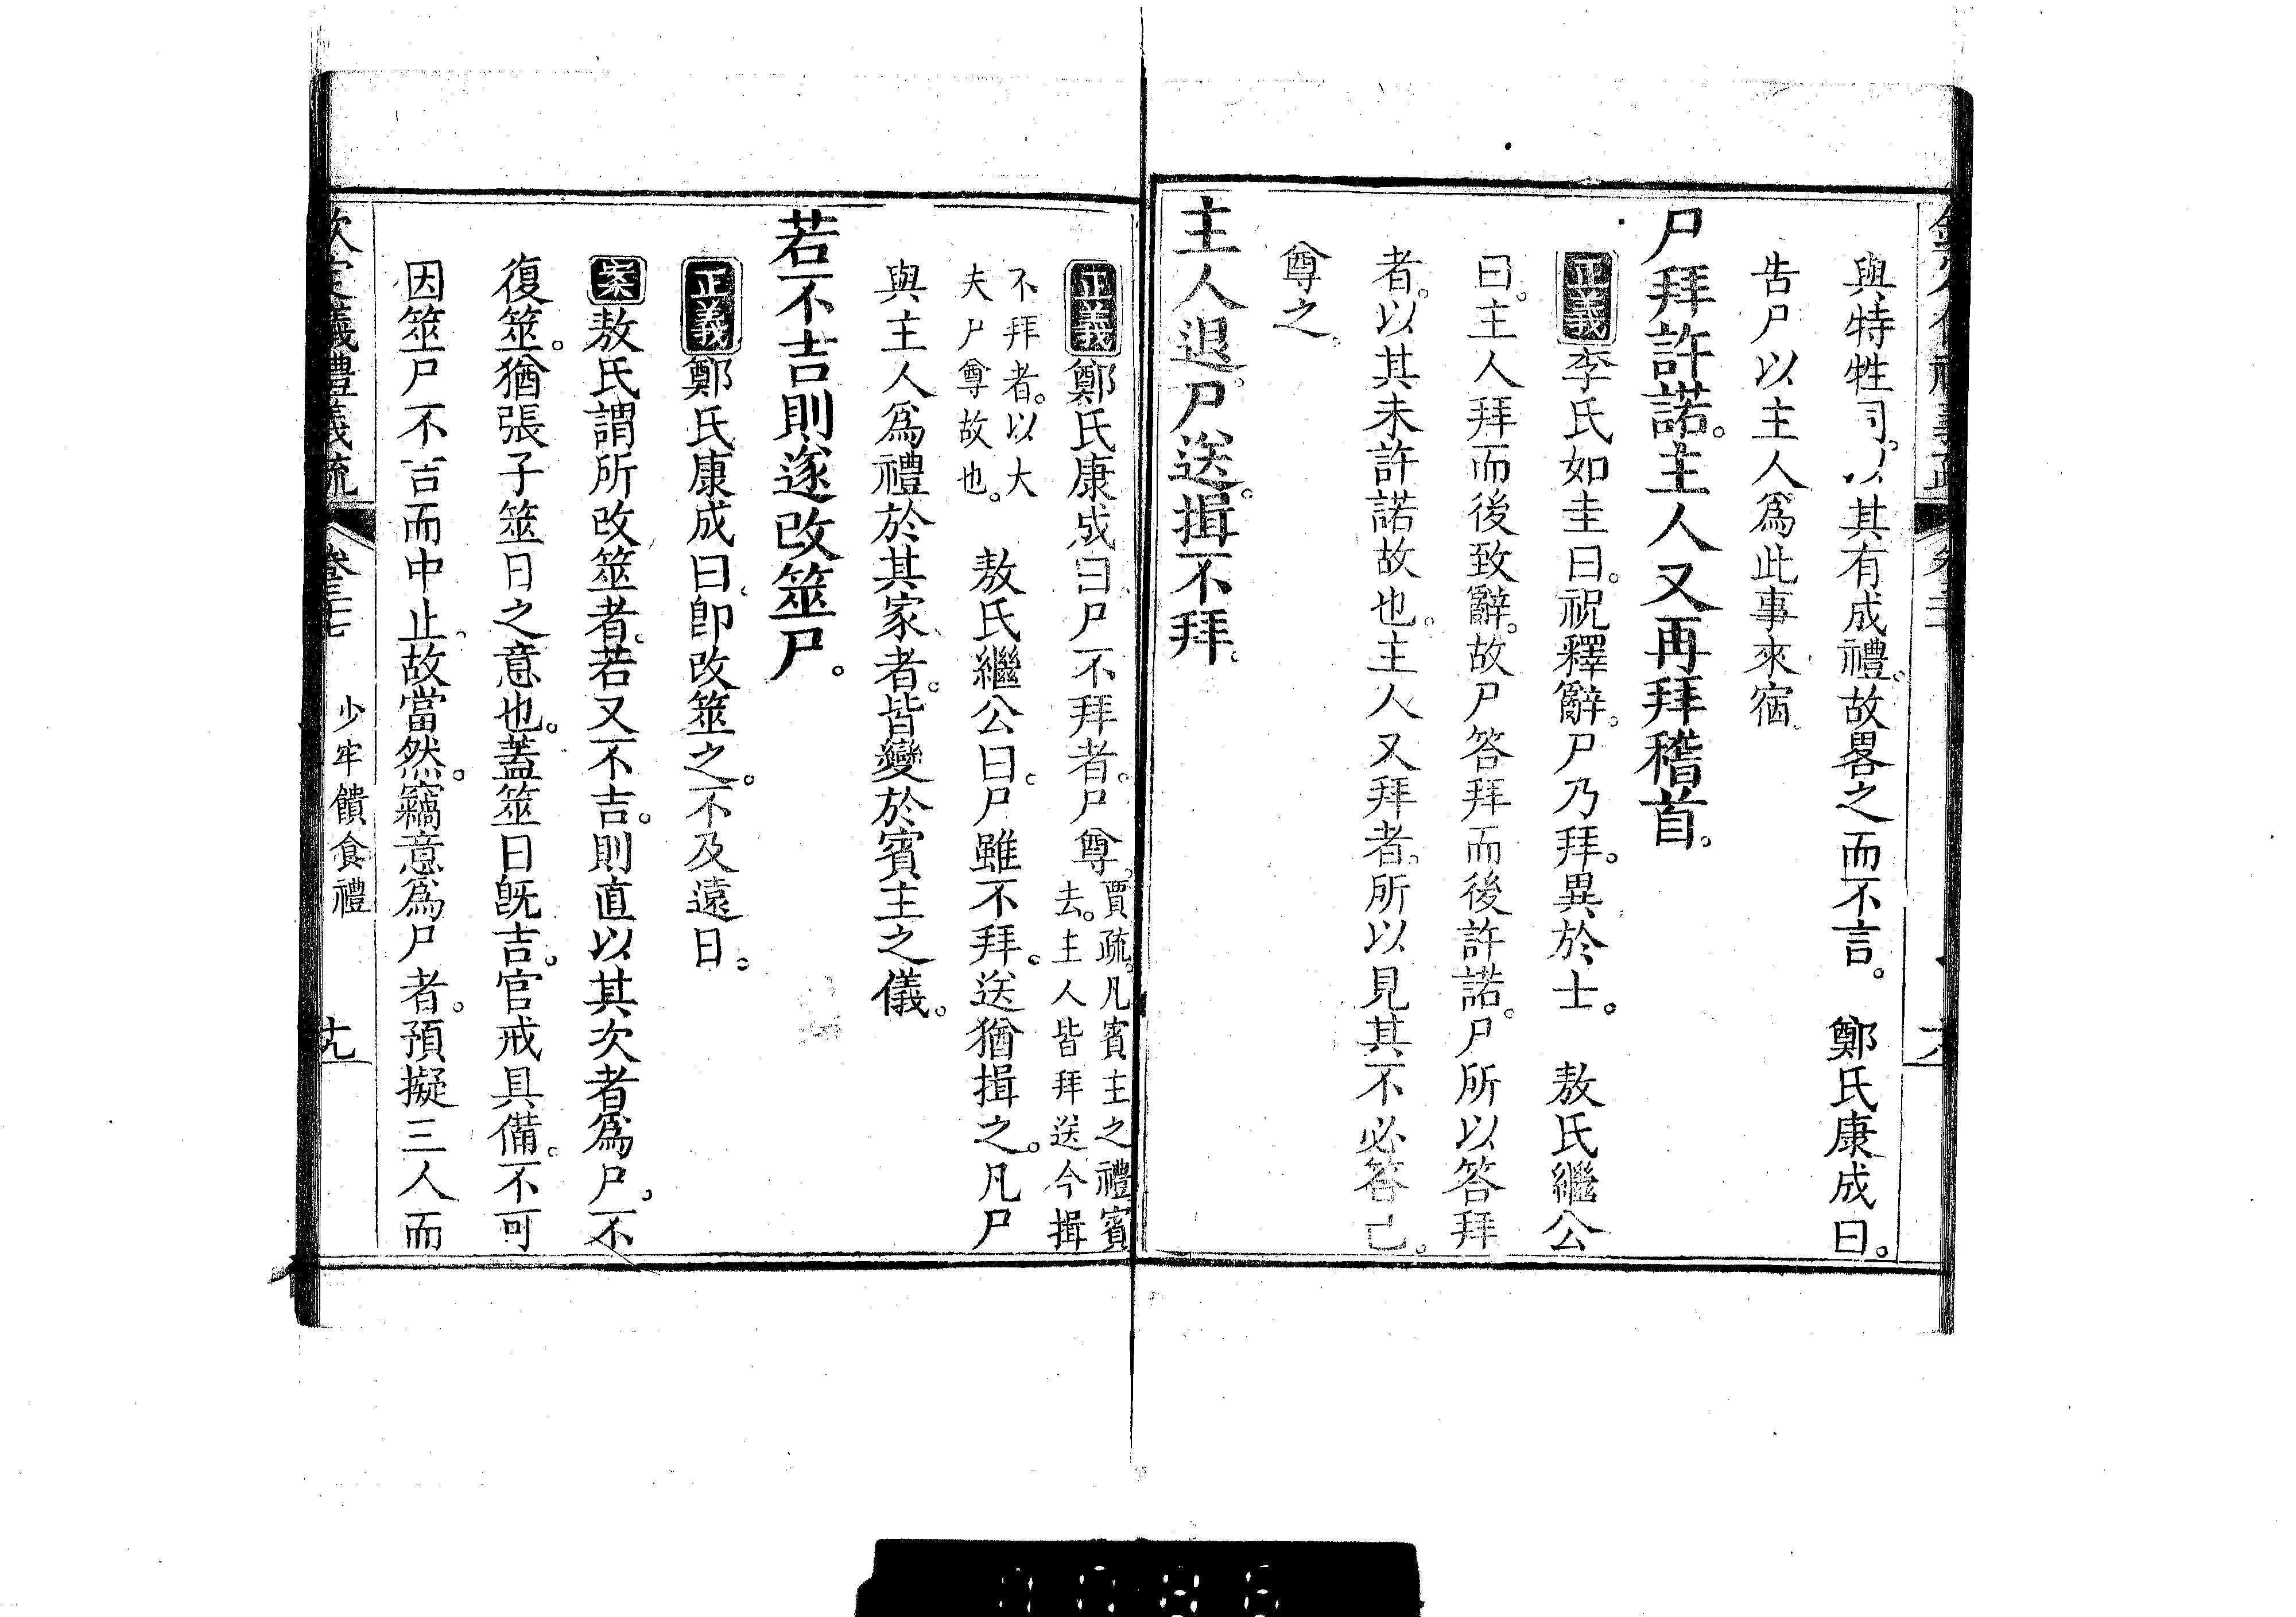 與特牲同以其有成禮。故畧之而不言。　鄭氏康成曰。
告尸以主人爲此事來宿
尸拜許諾。主人又再拜稽首。
正義李氏如圭曰。祝釋辭。尸乃拜。異於士。　敖氏繼公
曰。主人拜而後致辭。故尸答拜而後許諾。尸所以答拜
者。以其未許諾故也。主人又拜者。所以見其不必答己。
尊之。
主人退。尸送。揖不拜。
正義鄭氏康成曰。尸不拜者。尸尊。賈疏。凡賓主之禮賓
去。主人皆拜送今揖
不拜者。以大
夫尸尊故也。　敖氏繼公曰。尸雖不拜。送猶揖之。凡尸
與主人爲禮於其家者。皆變於賓主之儀。
若不吉則遂改筮尸。
正義鄭氏康成曰。卽改筮之。不及遠日。
案敖氏謂所改筮者。若又不吉。則直以其次者爲尸。不
復筮。猶張子筮日之意也。蓋筮日旣吉。官戒具備。不可
因筮尸不吉而中止。故當然。竊意爲尸者。預擬三人而
欽定儀禮義疏　卷三十七　少牢饋食禮　十九